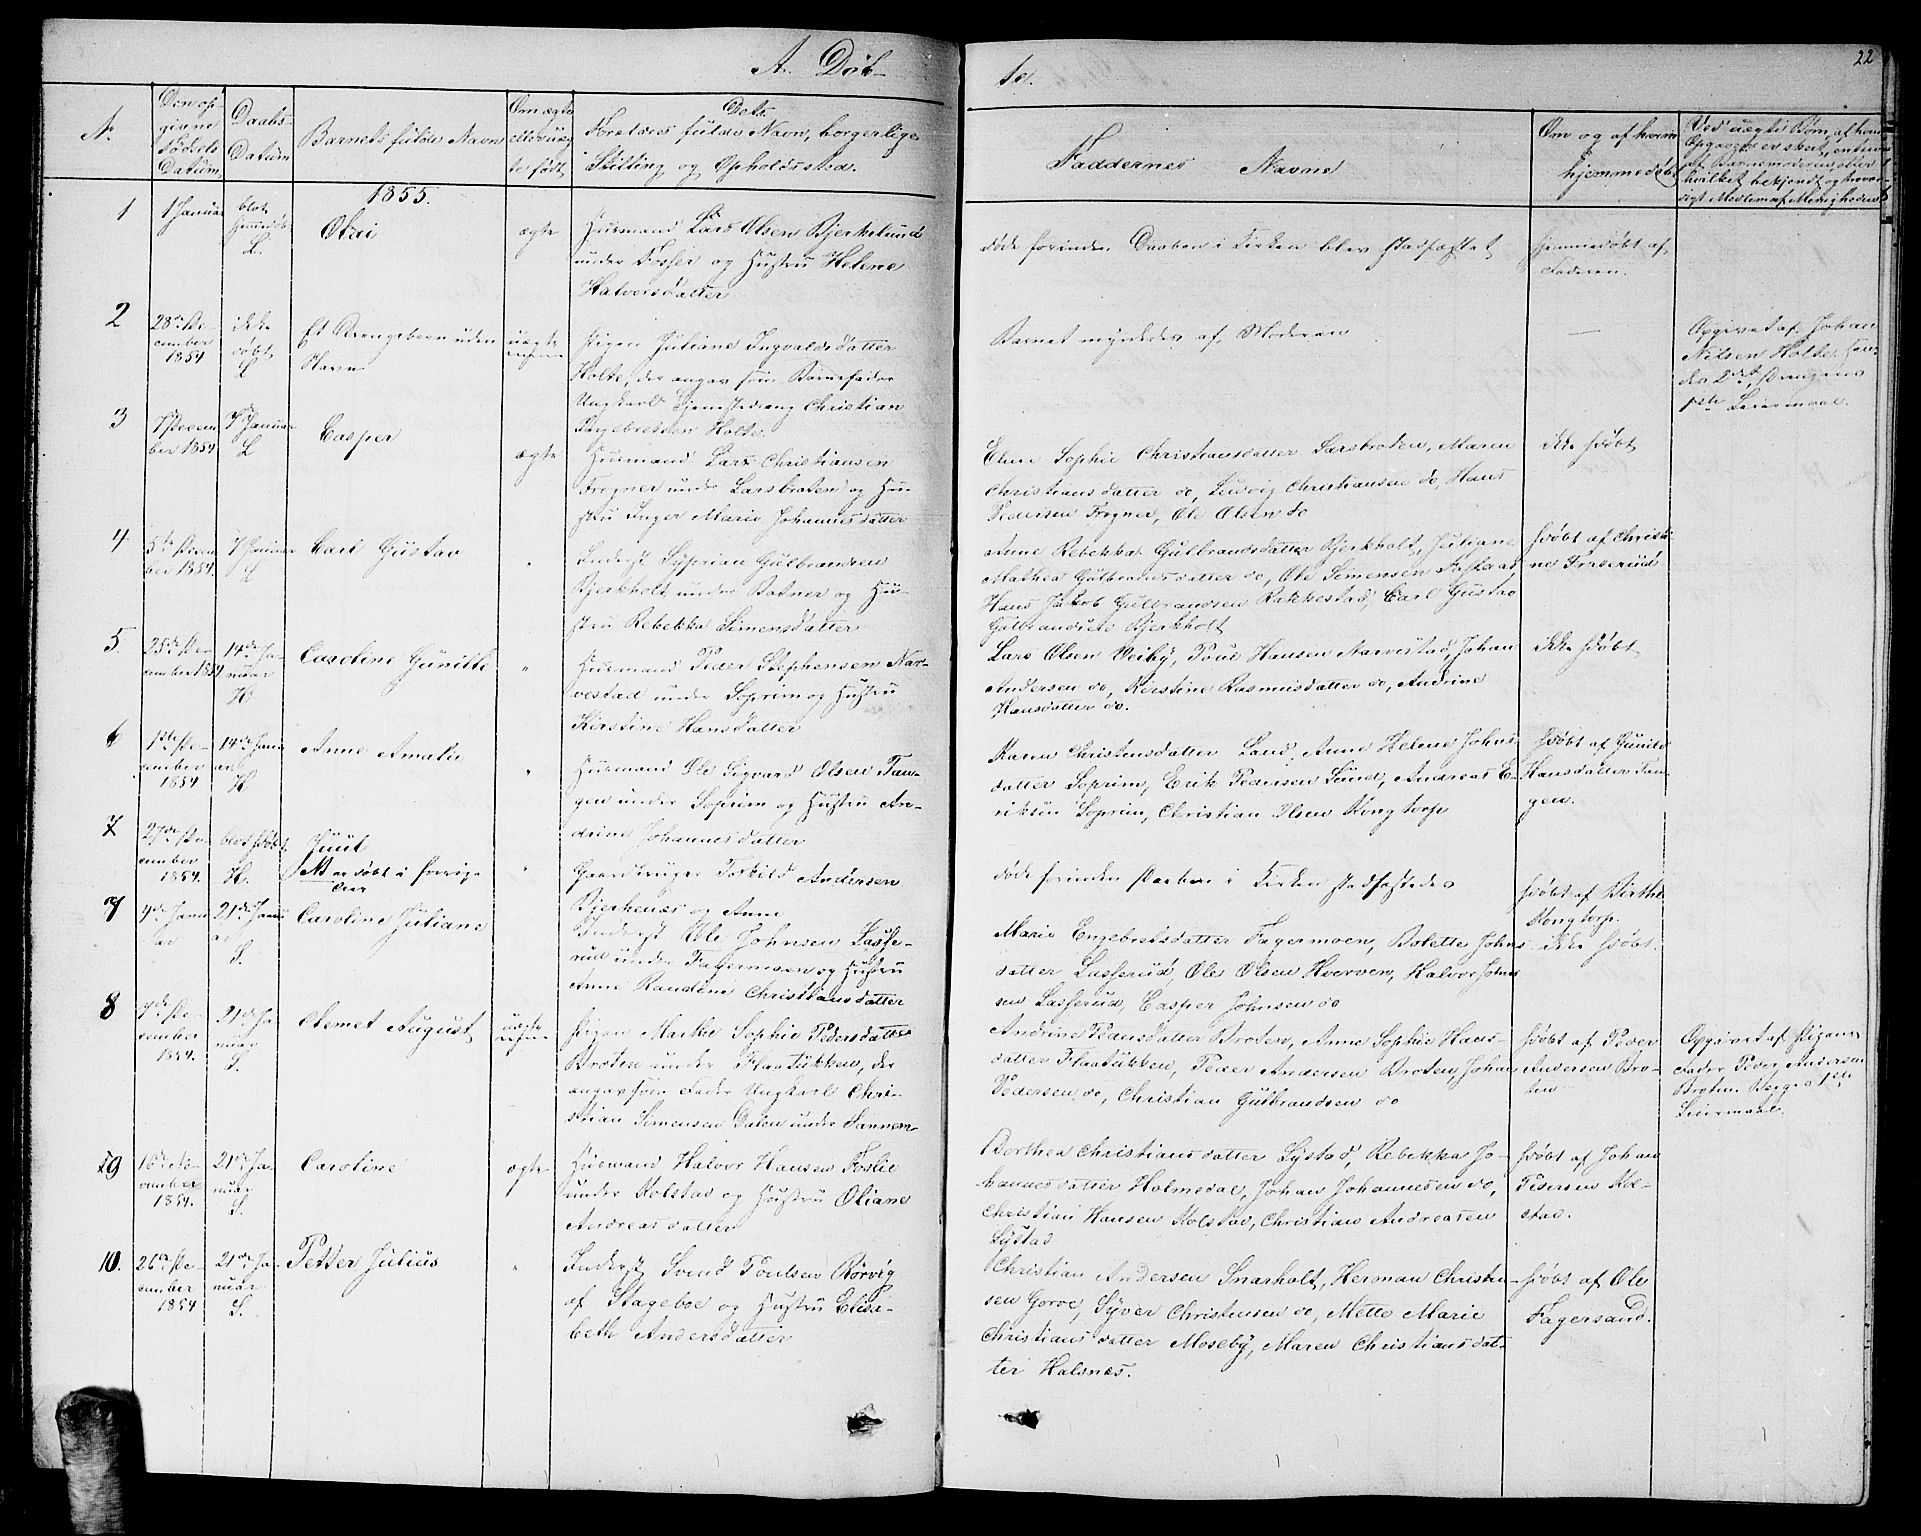 A. Døb-
te.
22
No.
Den op-
givne
Fødsels
Datum
Daabs-
Datum
Barnets fulde Navn
Om ægte
eller uæg-
te født
Dets
Forældres fulde Navn, borgerlige
Stilling og Opholdssted.
Faddernes Navne
Om og af hvem
hjemmedøbt
Ved uægte Børn, af hvem
Opgaven er skeet, enten
af Barnemoderen, eller
hvilket bekjendt og trovær-
digt Medlem af Menigheden
1855.
1
1 Januar
blot
hjemdøbt
L.
Otai
ægte
Huusmand Lars Olsen Bjerkelund
under Fosser og Hustru Helene
Halvorsdatter
døde forinden Daaben i Kirken blev stadfæstet
hjemmedøbt af
Faderen.
2
28de De-
cember
1854
ikke
døbt
L
Et Drengebarn uden
Navn
uægte
Pigen Juliane Ingvaldsdatter
Holte, der angav som Barnefader
Ungkarl Tjenestedreng Christian
Ingebretsen Holte.
Barnet myrdedes af Moderen
—
Opgivet af Johan
Nilsen Holte.
des 2det, Drengens
1ste Leiermaal.
3
1 Decem
ber 1854
7 Januar
L
Casper
ægte
Huusmand Lars Christiansen
Frogner under Larsbraten og Hu-
stru Inger Marie Johannesdatter
Eline Sophie Christiansdatter Larsbraten, Maren
Christiansdatter do, Ludvig Christiansen do, Hans
Pedersen Frogner, Ole Olsen do
ikke hdøbt
4
5te Decem
ber 1854.
7 Januar
L
Carl Gustav
"
Inderst Syprian Gulbrandsen
Bjerkholt under Botner og Hu-
stru Rebekka Simensdatter
Anne Rebekka Gulbrandsdatter Bjerkholt, Juliane
Mathea Gulbransdatter do, Ole Simensen
Hans Jakob Gulbrandsen Rakkestad, Carl Gustav
Gulbrandsen Bjerkholt
hdøbt af Christi-
ne Fraserud
5.
25de De-
cember 1854
14de Ja-
nuar
H
Caroline Gunilde
"
Huusmand Peder Stephensen Nar-
vestad under Soprim og Hustru
Kirstine Hansdatter
Lars Olsen Veiby, Poul Hansen Narvestad, Johan
Andersen do, Kirstine Rasmusdatter do, Andrine
Hansdatter do.
ikke hdøbt
6
1ste De-
cember
1854
14de Janu
ar
H
Anne Amalie
"
Huusmand Ole Sigvard Olsen Tan-
gen under Soprim og Hustru An-
drine Johannesdatter
Karen Christensdatter Sand, Anne Helene Johns-
datter Soprim, Erik Pedersen Sund, Andreas E-
riksen Soprim, Christian Olsen Kongtorp
hdøbt af Gunild
Hansdatter Tan-
gen.
7
27de De-
cember
1854.
blot hdøbt
H.
Juul
NB er døbt i forrige
Aar
"
Gaardbruger Torkild Andersen
Bjerkenæs og Anne
døde forinden Daaben i Kirken stadfæstedes
hdøbt af Birthe
Kongtorp.
7
4de Janu
ar
21de Janu
ar
S.
Caroline Juliane
Inderst Ole Johnsen Lasse-
rud under Fagermoen og Hustru
Anne Randine Christiansdatter
Marie Engebretsdatter Fagermoen, Bolette Johns
datter Lasserud, Ole Olsen Hverven, Halvor Johns
sen Lasserud, Casper Johnsen do
ikke hdøbt.
8
7de De-
cember
1854.
21de Ja-
nuar
S.
Clemet August
uægte
Pigen Marthe Sophie Pedersdatter
Broten under Flaatükken, der
angav som Fader Ungkarl Chri-
stian Simensen Dalen under Sannem
Andrine Pedersdatter Broten, Anne Sophie Hans-
datter Flaatükken, Peder Andersen Broten, Johan
Pedersen do, Christian Gulbrandsen do
hdøbt af Peder
Andersen Bro-
ten
Opgivet af Pigens
Fader Peder Andersen
Broten. Begges 1ste
Leiermaal.
9
16de No-
vember
1854.
21de Ja-
nuar
S.
Caroline
ægte
Huusmand Halvor Hansen Foslie
under Kolstad og Hustru Oliane
Andreasdatter
Dorthea Christiansdatter Lystad, Rebekka Jo-
hannesdatter Holmedal, Johan Johannesen do,
Christian Hansen Kolstad, Christian Andreasen
Lystad
hdøbt af Johan
Pedersen Kol-
stad.
10.
26de De-
cember
1854
21de Ja-
nuar
S.
Petter Julius
"
Inderst Svend Poulsen Rørvig
af Stageboe og Hustru Elisa-
beth Andersdatter
Christian Andersen Snarholt, Herman Christen-
sen Gorve, Syver Christensen do, Mette Marie
Christiansdatter Moseby, Maren Christiansdat-
ter Halsnes.
hdøbt af Ole
Fagersand.